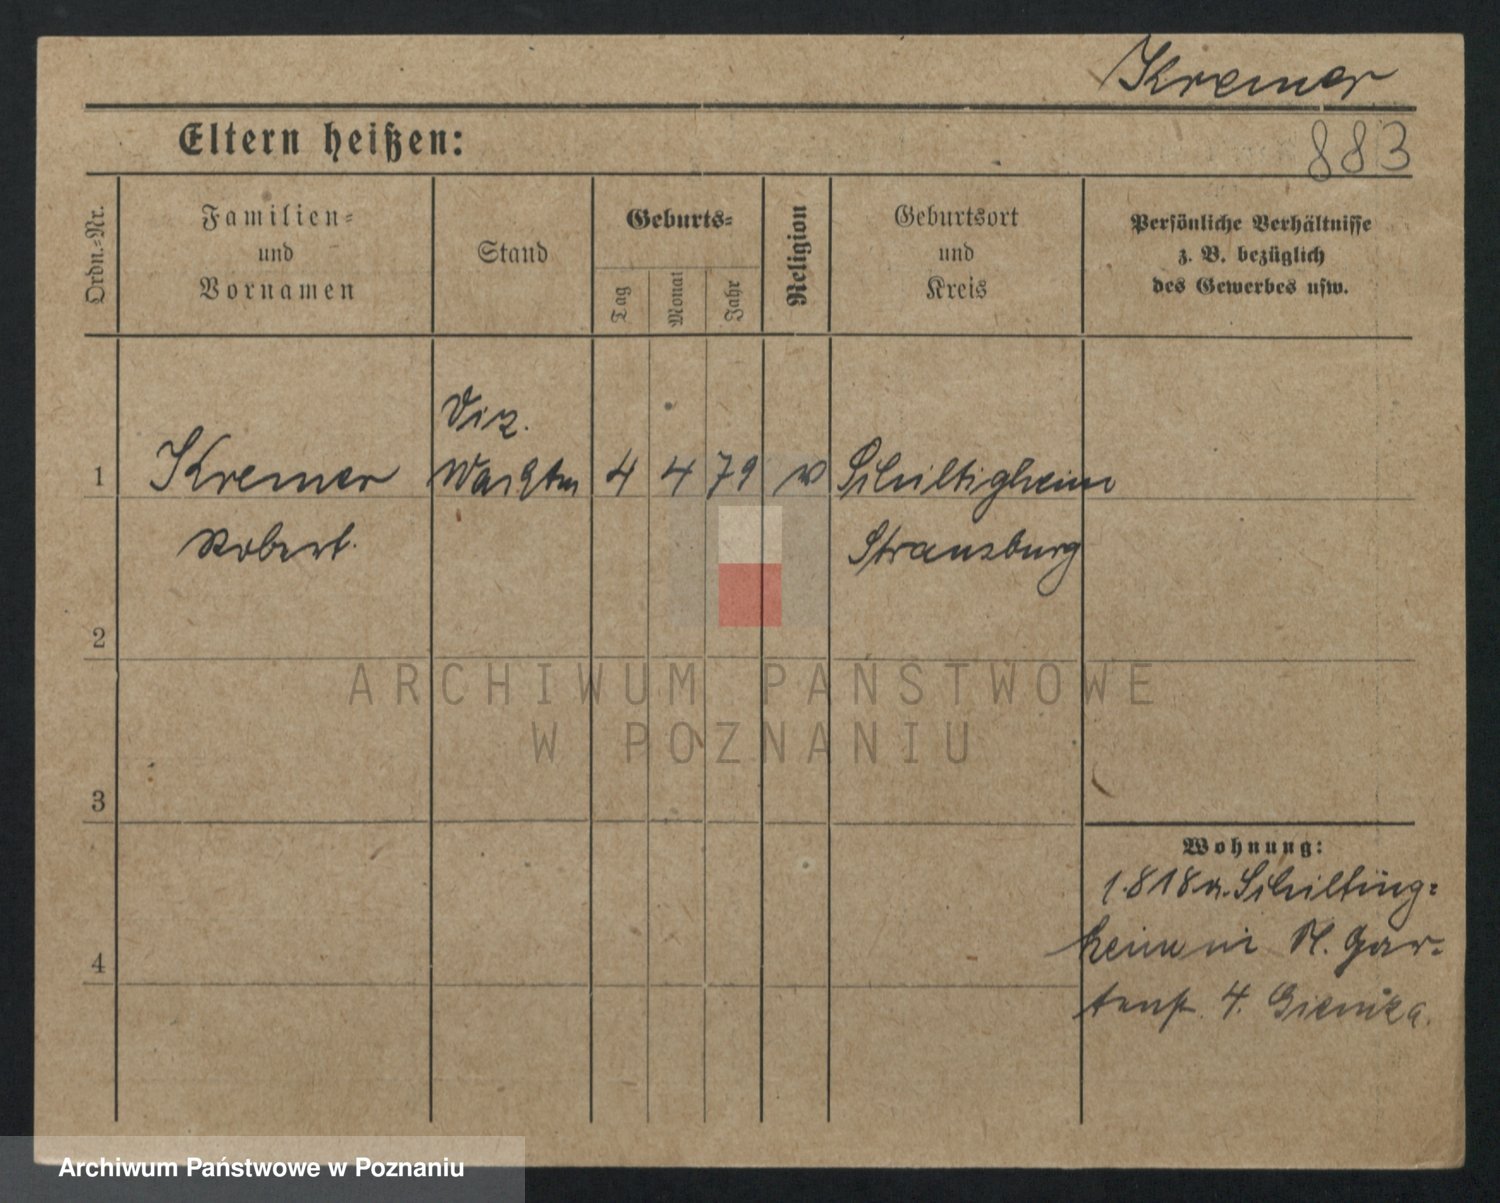 Kremer
Eltern heißen:
883
Ordn.-Nr.
Familien-
und
Vornamen
Stand
Geburts-
Tag
Monat
Jahr
Religion
Geburtsort
und
Kreis
Persönliche Verhältnisse
z. B. bezüglich
des Gewerbes usw.
1
Kremer
Viz.
Wachtm
4
4
79
Schiltigheim
Robert.
Strassburg
2
ARCHIWUM PAŃSTWOWE
W POZNANIU
3
Wohnung:
1.818 v. Schilting-
heim
Gar-
tenstr. 4.
4
Archiwum Państwowe w Poznaniu